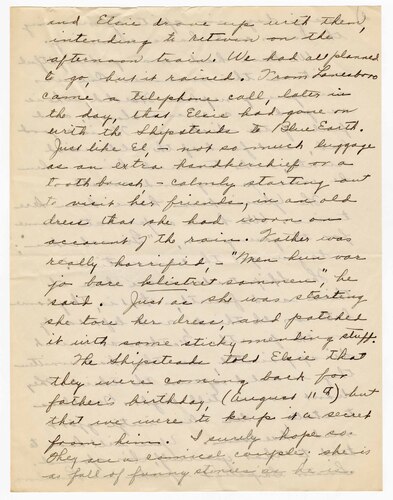 and Elsie drove up with them,
intending to return on the
afternoon train. We had all planned
to go, but it rained. From Lanesboro
came a telephone call, later in
the day, that Elsie had gone on
with the Shipsteads to Blue Earth.
Just like El, – not so much luggage
as an extra handkerchief or a
toothbrush – calmly starting out
to visit her friends, in an old
dress that she had worn on
account of the rain. Father was
really horrified, – "Men hun var
jo bare klistret sammen", he
said. Just as she was starting
she tore her dress, and patched
it with some sticky mending stuff.
The Shipsteads told Elsie that
they were coming back for
father's birthday, (August 11th) but
that we were to keep it a secret
from him. I surely hope so.
They are a comical couple; she is
as full of funny stories as he is.